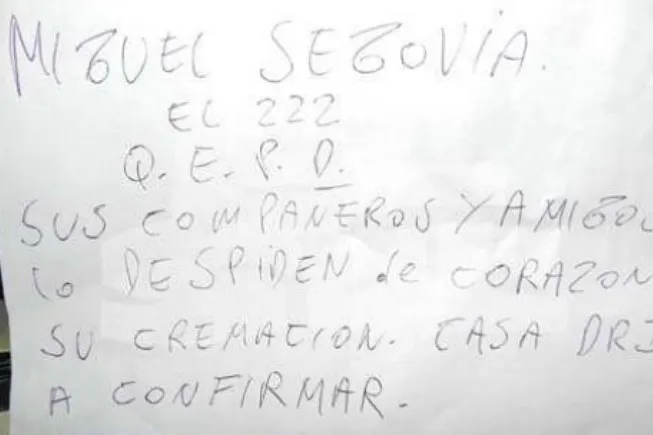 MIGUEL SEGOVIA.
EL 222
Q. E. P. D.
SUS COMPAÑEROS Y AMIGOS
lo DESPIDEN de CORAZON
SU CREMACION. CASA
A CONFIRMAR.